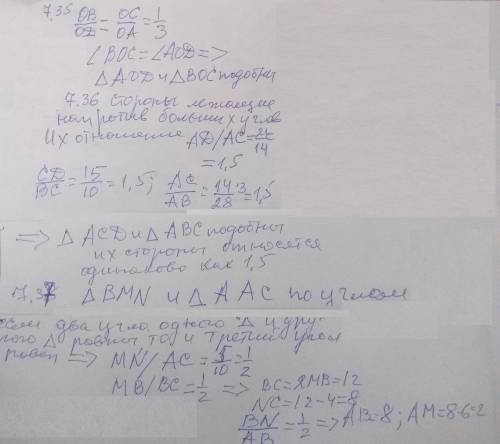 7.35 OB/OD = OC/OA = 1/3
∠BOC = ∠AOD =>
△AOD и △BOC подобны
7.36 стороны лежащие
напротив больших углов
Их отношение AD/AC = 21/14
= 1,5
CD/BC = 15/10 = 1,5; AC/AB = 14·3/28 = 1,5
=> △ ACD и △ ABC подобны
их стороны относятся
одинаково как 1,5
7.37 △BMN и △AAC по углам
Если два угла одного △ и дру-
гого △ равны то и третий угол
равен => MN/AC = 5/10 = 1/2
MB/BC = 1/2 => BC = 2MB = 12
NC = 12 - 4 = 8
BN/AB = 1/2 => AB = 8; AM = 8-6 = 2